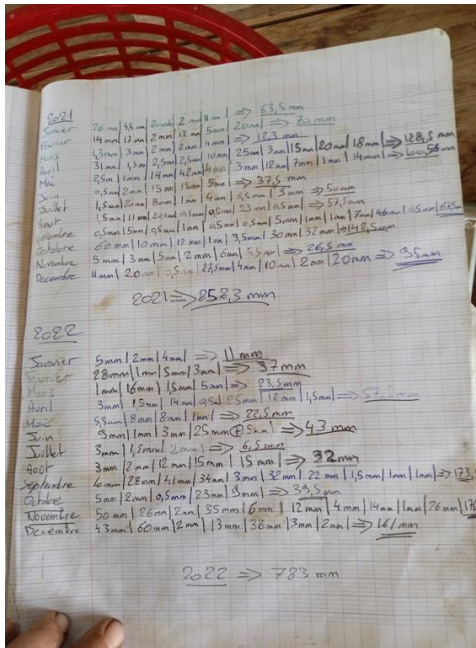 2021
Janvier 26 mm | 4,5 mm | 20 mm | 2 mm | 11 mm | => 63,5 mm
Février 14 mm | 17 mm | 2 mm | 12 mm | 5 mm | 20 mm | => 70 mm
Mars 4,3 mm | 3 mm | 2 mm | 2 mm | => 12,3 mm
Avril 31 mm | 1,5 mm | 2,5 mm | 10 mm | 25 mm | 3 mm | 15 mm | 20 mm | 18 mm | => 128,5 mm
Mai 2,5 mm | 1 mm | 14 mm | 42 mm | 3 mm | 12 mm | 7 mm | 1 mm | 14 mm | =>
Juin 0,5 mm | 2 mm | 15 mm | 15 mm | 5 mm | => 37,5 mm
Juillet 1,5 mm | 20 mm | 8 mm | 1 mm | 4 mm | 3 mm | => 50 mm
Août 1,5 mm | 11 mm | 20 mm | 0,5 mm | 0,5 mm | 23 mm | 0,5 mm | => 57,5 mm
Septembre 0,5 mm | 5 mm | 0,5 mm | 1 mm | 0,5 mm | 0,5 mm | 5 mm | 1 mm | 1 mm | 7 mm | 46 mm | 0,5 mm |
Octobre 60 mm | 10 mm | 12 mm | 1 mm | 3,5 mm | 30 mm | 32 mm | => 148,5 mm
Novembre 5 mm | 3 mm | 5 mm | 2 mm | 6 mm | 5,5 mm | => 26,5 mm
Decembre 11 mm | 20 mm | 0,5 mm | 27,5 mm | 4 mm | 10 mm | 2 mm | 20 mm => 95 mm
2021 => 858,3 mm
2022
Janvier 5 mm | 2 mm | 4 mm | => 11 mm
Février 28 mm | 1 mm | 5 mm | 3 mm | => 37 mm
Mars 1 mm | 16 mm | 1,5 mm | 5 mm | => 23,5 mm
Avril 3 mm | 1,5 mm | 14 mm | 0,5 mm | 25 mm | 12 mm | 1,5 mm | => 57,5 mm
Maï 5,5 mm | 8 mm | 8 mm | 1 mm | => 22,5 mm
Juin 9 mm | 1 mm | 3 mm | 25 mm + 5 mm | => 43 mm
Juillet 3 mm | 1,5 mm | 2 mm | => 6,5 mm
Août 3 mm | 2 mm | 12 mm | 15 mm | => 32 mm
Septembre 6 mm | 28 mm | 41 mm | 34 mm | 3 mm | 32 mm | 22 mm | 1,5 mm | 1 mm | 1 mm | =>
Octobre 5 mm | 2 mm | 0,5 mm | 23 mm | 9 mm | => 39,5 mm
Novembre 50 mm | 26 mm | 2 mm | 35 mm | 6 mm | 12 mm | 4 mm | 14 mm | 1 mm | 26 mm |
Decembre 43 mm | 60 mm | 2 mm | 13 mm | 38 mm | 3 mm | 2 mm | => 161 mm
2022 => 783 mm